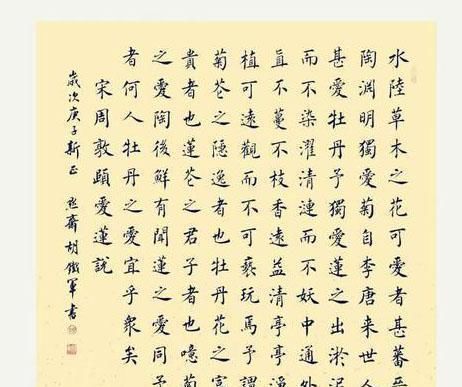 水陸草木之花可愛者甚蕃
陶淵明獨愛菊自李唐來世人
甚愛牡丹予獨愛蓮之出淤
而不染濯清漣而不妖中通外
直不蔓不枝香遠益清亭亭
植可遠觀而不可褻玩焉予謂
菊花之隱逸者也牡丹花之富
貴者也蓮花之君子者也噫菊
之愛陶後鮮有聞蓮之愛同予
者何人牡丹之愛宜乎眾矣
宋周敦頤愛蓮說
歲次庚子新正 齋胡鐵軍書